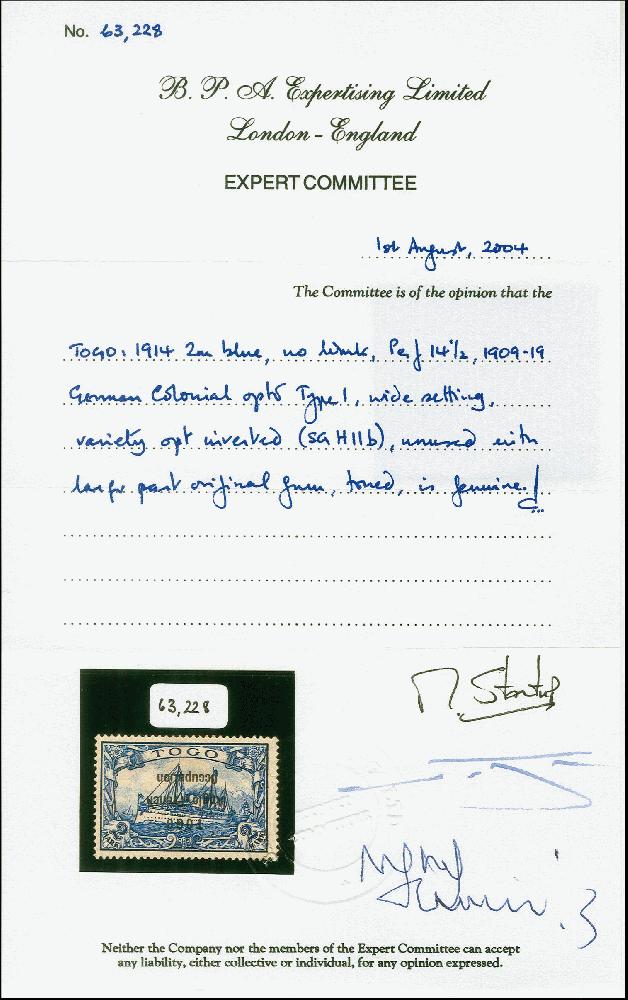 No. 63,228
B. P. A. Expertising Limited
London - England
EXPERT COMMITTEE
1st August, 2004
The Committee is of the opinion that the
TOGO: 1914 2m blue, no wmk, Perf 14½, 1909-19
German Colonial optd Type 1, wide setting,
variety opt inverted (SG H11b), unused with
large part original gum, toned, is genuine.
63,228
TOGO
Occupation
Anglo-French
Neither the Company nor the members of the Expert Committee can accept
any liability, either collective or individual, for any opinion expressed.